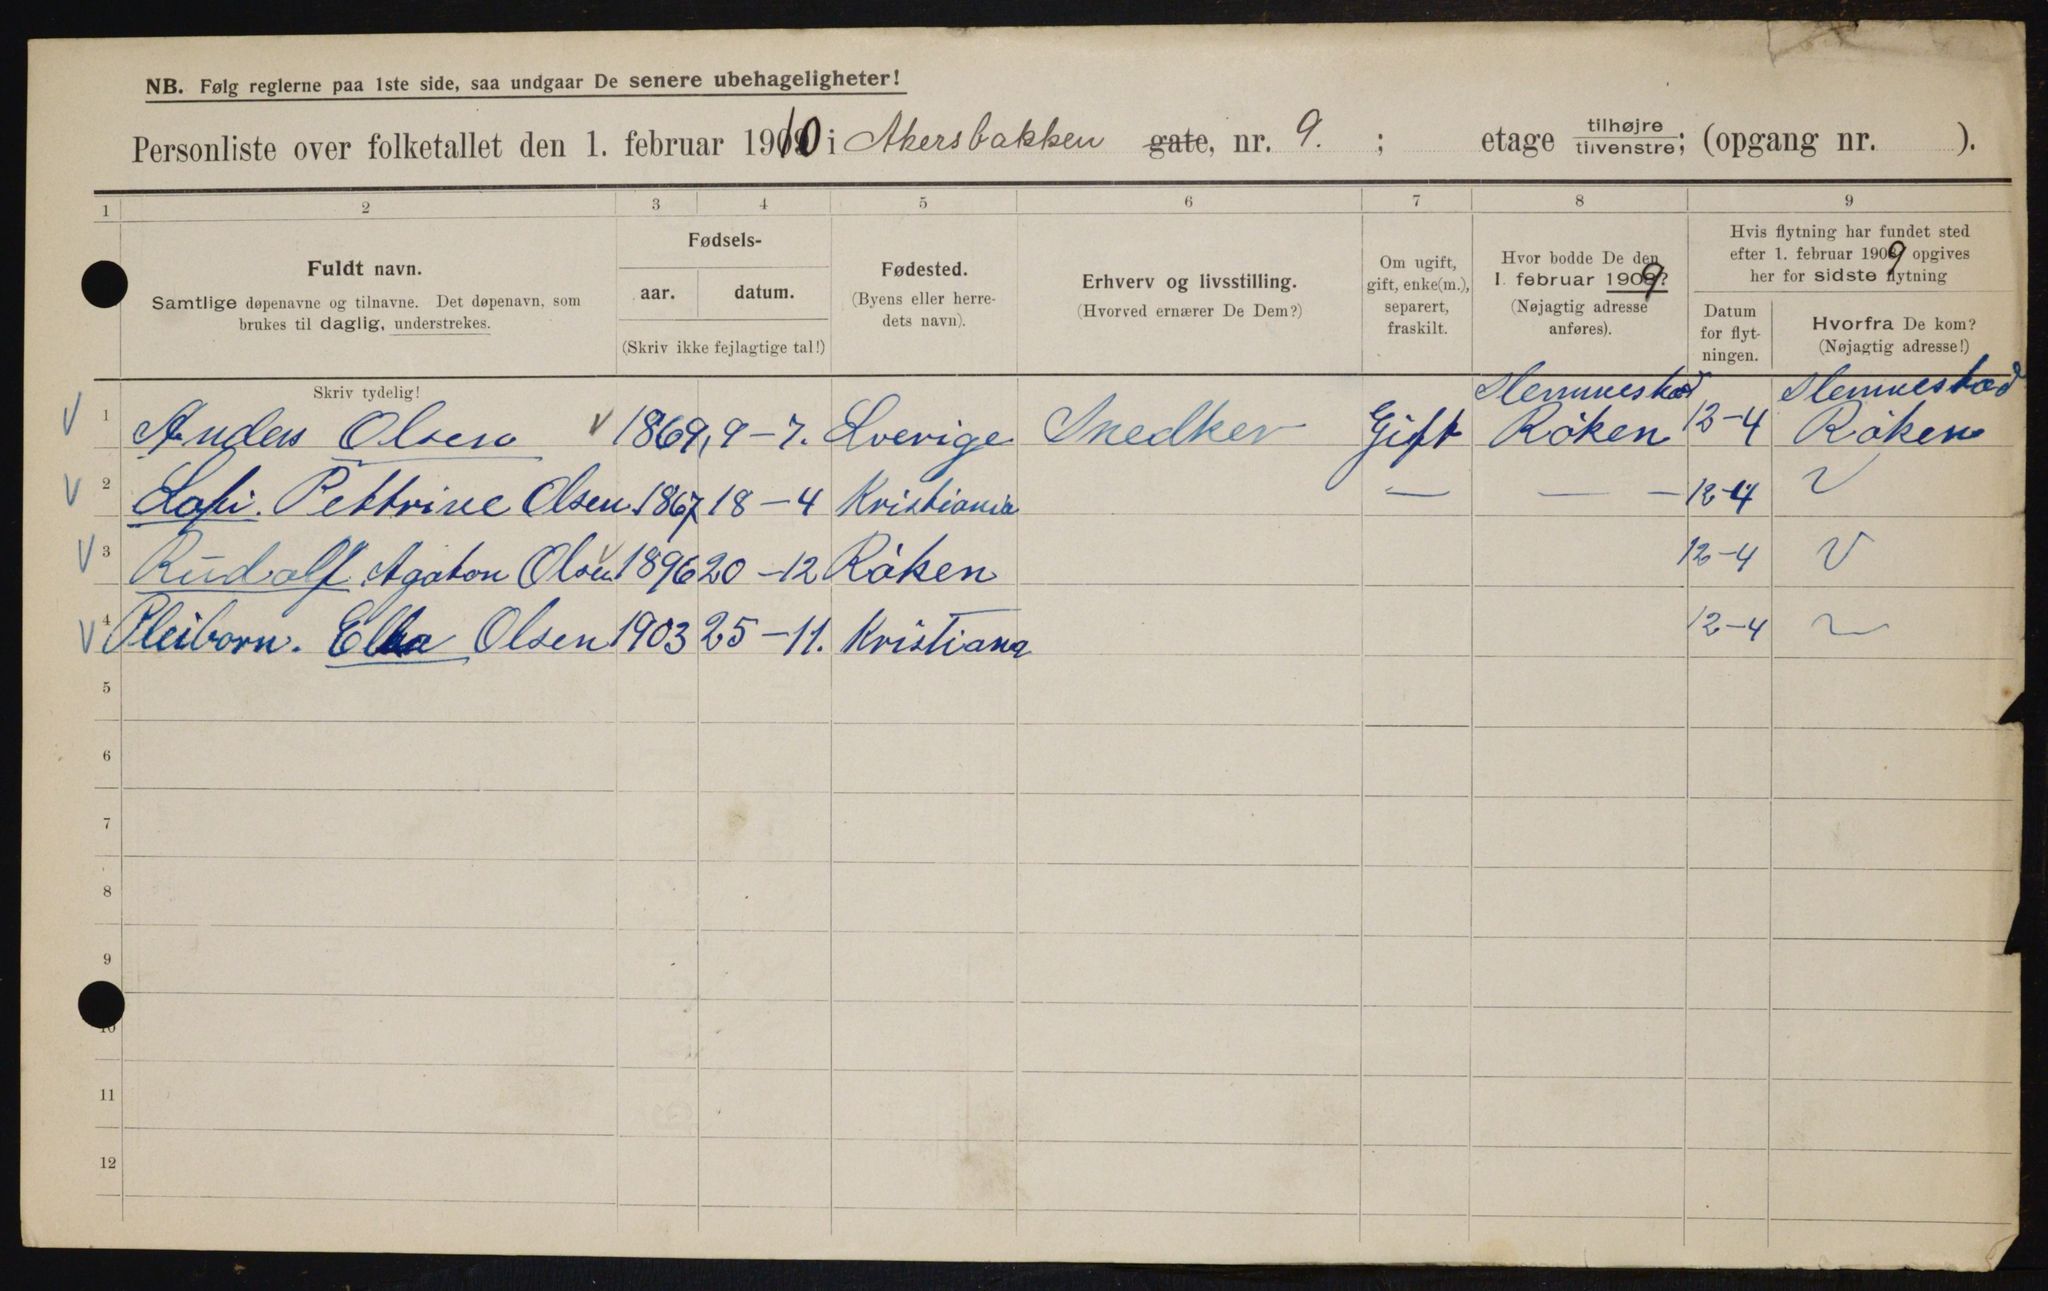 NB. Følg reglerne paa 1ste side, saa undgaar De senere ubehageligheter!
Personliste over folketallet den 1. februar 1910 i Akersbakken gate, nr. 9. ; etage tilhøjre tilvenstre; (opgang nr. ).
1 2 3 4 5 6 7 8 9
Fuldt navn.
Samtlige døpenavne og tilnavne. Det døpenavn, som
brukes til daglig, understrekes.
Fødsels-
aar. datum.
(Skriv ikke fejlagtige tal!)
Fødested.
(Byens eller herre-
dets navn).
Erhverv og livsstilling.
(Hvorved ernærer De Dem?)
Om ugift,
gift, enke(m.),
separert,
fraskilt.
Hvor bodde De den
1. februar 1909?
(Nøjagtig adresse
anføres).
Hvis flytning har fundet sted
efter 1. februar 1909 opgives
her for sidste flytning
Datum
for flyt-
ningen.
Hvorfra De kom?
(Nøjagtig adresse!)
Skriv tydelig!
Slemmestad Slemmestad
1 Anders Olsen 1869 9-7. Sverige Snedker Gift Røken 12-4 Røken
2 Pettrine Olsen 1867 18-4 Kristiania — — — 12-4
3 Rudolf Agaton Olsen 1896 20-12 Røken 12-4
4 Pleiborn. Ella Olsen 1903 25-11. Kristiana 12-4
5
6
7
8
9
10
11
12